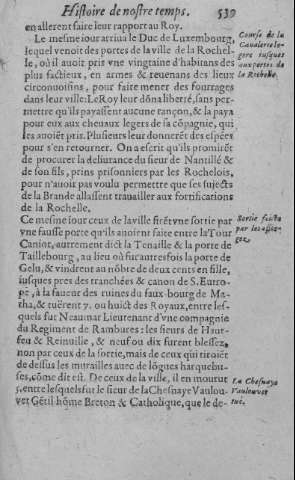 Histoire de nostre temps. 539
en allerent faire leur rapport au Roy.
Le mesme iour arriua le Duc de Luxembourg,
lequel venoit des portes de la ville de la Rochel-
le, où il auoit pris vne vingtaine d'habitans des
plus factieux, en armes & reuenans des lieux
circonuoisins, pour faire mener des fourrages
dans leur ville: Le Roy leur dõna liberté, sans per-
mettre qu'ils payassent aucune rançon, & la paya
pour eux aux cheuaux legers de sa cõpagnie, qui
les auoiẽt pris. Plusieurs leur donnerẽt des espees
pour s'en retourner. On a escrit qu'ils promirẽt
de procurer la deliurance du sieur de Nantillé &
de son fils, prins prisonniers par les Rochelois,
pour n'auoir pas voulu permettre que ses sujects
de la Brande allassent trauailler aux fortifications
de la Rochelle.
Course de la
Caualerie le-
gere iusques
aux portes de
la Rochelle.
Ce mesme iour ceux de la ville firẽt vne sortie par
vne fausse porte qu'ils auoient faite entre la Tour
Caniot, autrement dict la Tenaille & la porte de
Taillebourg, au lieu où fut autresfois la porte de
Gelu, & vindrent au nõbre de deux cents en file,
iusques pres des tranchées & canon de S. Euro-
pe, à la faueur des ruines du faux-bourg de Ma-
tha, & tuërent 7. ou huict des Royaux, entre les-
quels fut Neaumar Lieutenant d'vne compagnie
du Regiment de Rambures: les sieurs de Haut-
feu & Reinuille, & neuf ou dix furent blessez,
non par ceux de la sortie, mais de ceux qui tiroiẽt
de dessus les murailles auec de lõgues harquebu-
ses, cõme dit est. De ceux de la ville, il en mourut
5. entre lesquels fut le sieur de la Chesnaye Vaulou-
vet Gẽtil-hõme Breton & Catholique, que le de-
Sortie faicte
par les assie-
gez.
La Chesnaye
Vaulouuet
tué.